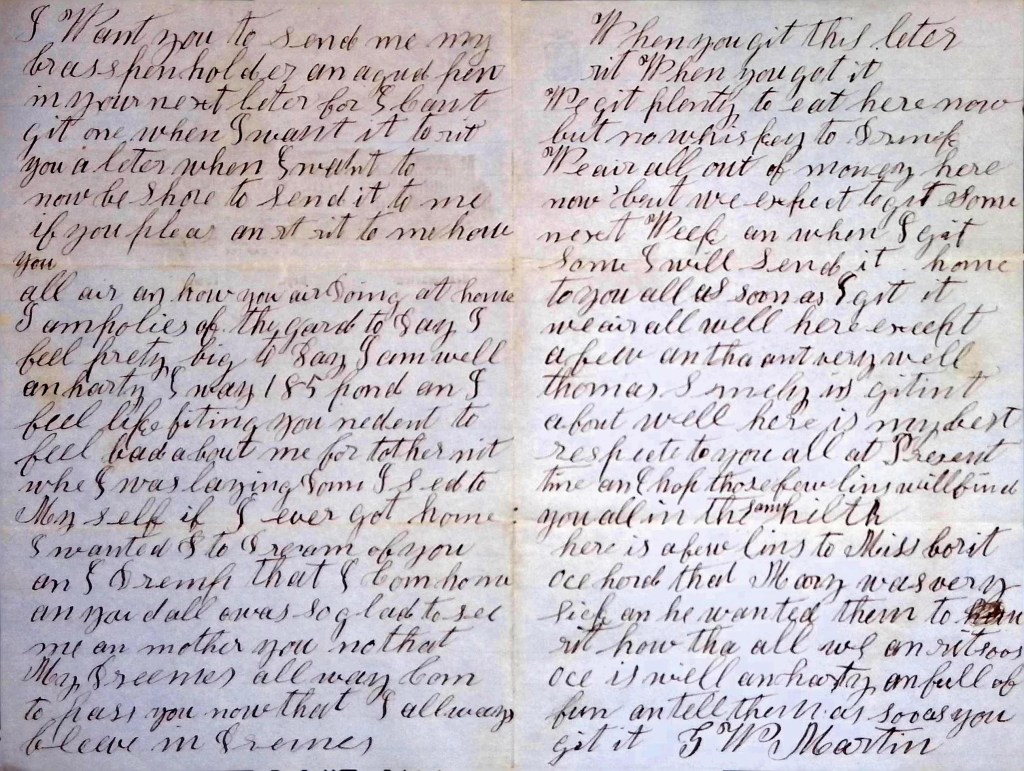 I Want you to send me my
brass pen holder an a gud pen
in your next leter for I Cant
git one when I want it to rit
you a leter when I want to
now be shore to send it to me
if you pleas an rit to me how
you
all air an how you air Doing at home
I am polies of the gard to Day I
feel prety big to Day I am well
an harty I way 185 pond an I
feel like fiting you nedent to
feel bad about me for tother nit
whe I was laying Down I sed to
My self if I ever got home
I wanted to Dream of you
an I Dremp that I Com home
an you all was so glad to see
me an mother you no that
My Dreemes all way Com
to pass you now that I allways
bleeve in Dremes
When you git this leter
rit When you got it
We git plenty to eat here now
but no whiskey to Drink
We air all out of money here
now but we expect to git some
next Week an when I git
some I will send it home
to you all as soon as I git it
we air all well here except
a few an tha ant very well
thomas Smely is gitint
about well here is my best
respects to you all at Present
time an I hop those few lins will find
you all in the same hilth
here is a few lins to Miss
oce hord that Mary was very
sick an he wanted them to
rit how tha all we an rit soos
oce is well an harty an full of
fun an tell them as soo as you
git it G W Martin